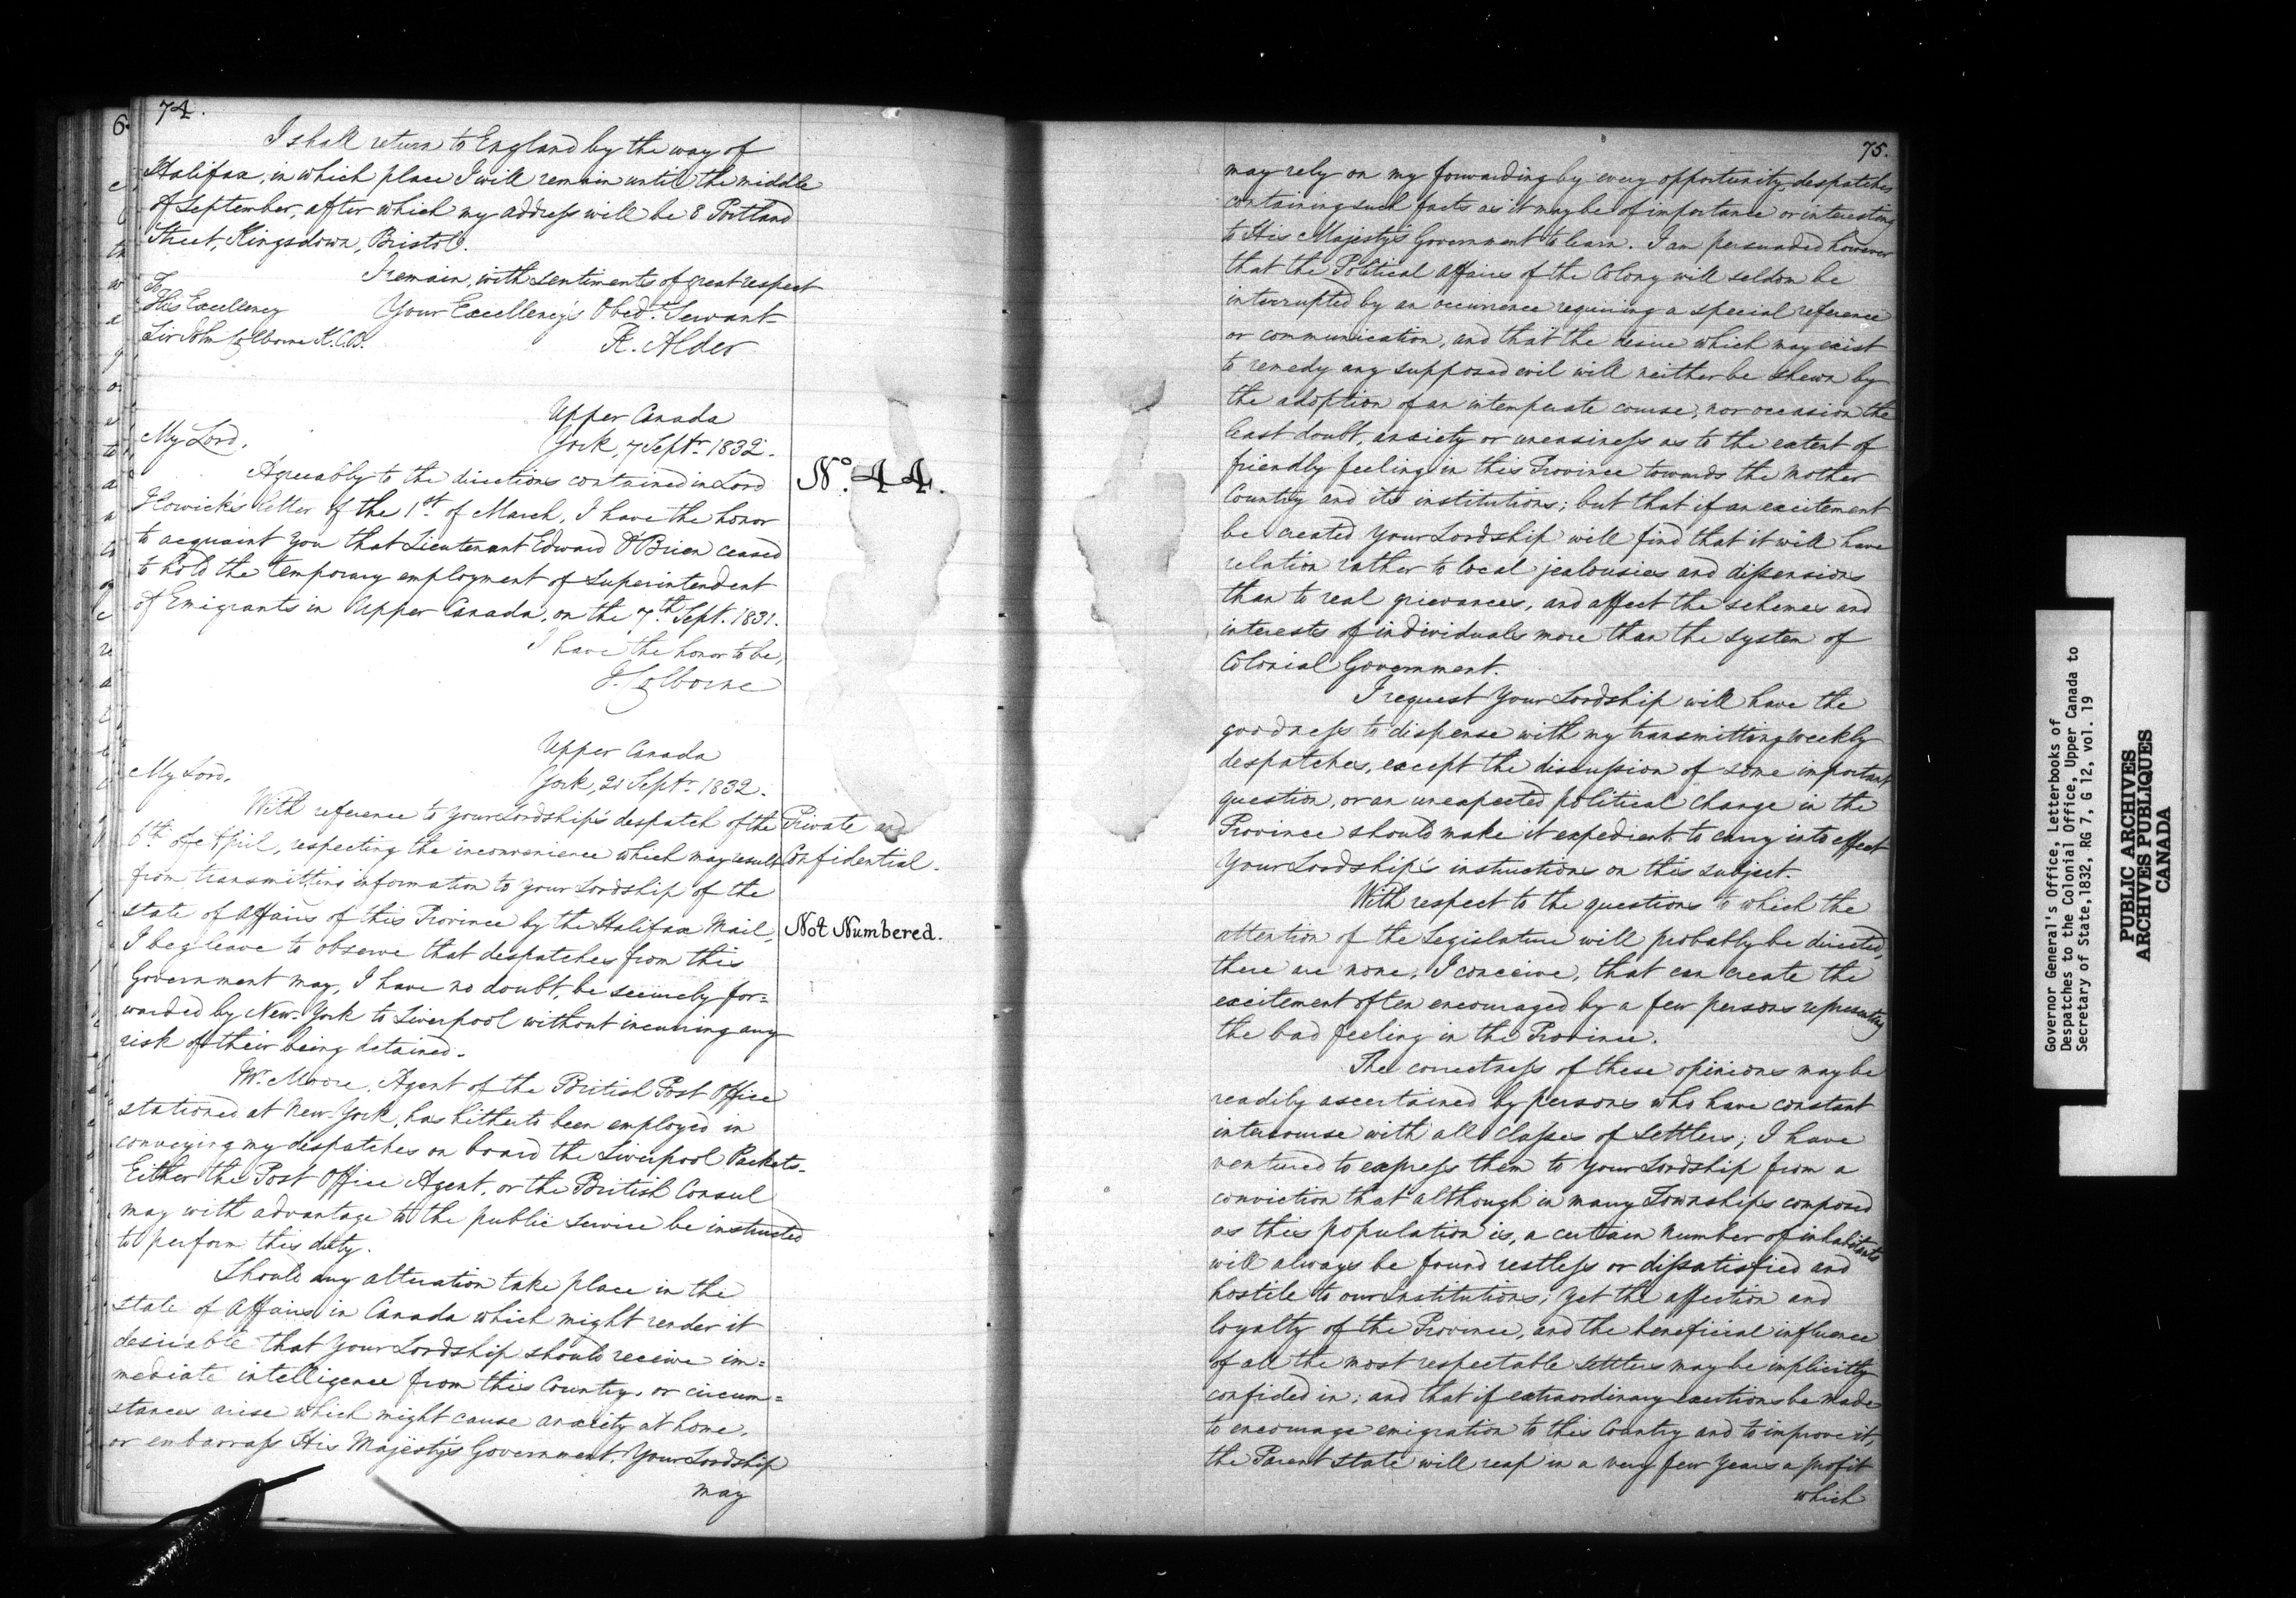 74.
I shall return to England by the way of
Halifax, in which place I will remain until the middle
of September, after which my address will be 8 Portland
Street, Kingsdown, Bristol.
I remain, with sentiments of great respect
To
His Excellency
Your Excellency's Obedt. Servant
Sir John Colborne K.C.B.
R. Alder
Upper Canada
My Lord,
York, 7 Septr. 1832.
No. 44.
Agreeably to the directions contained in Lord
Howick's letter of the 1st of March, I have the honor
to acquaint you that Lieutenant Edward O'Brien ceased
to hold the temporary employment of Superintendent
of Emigrants in Upper Canada, on the 7th Sept. 1831.
I have the honor to be,
J. Colborne
Upper Canada
My Lord,
York, 21 Septr. 1832.
Private and
Confidential.
Not Numbered.
With reference to your Lordship's despatch of the
6th of April, respecting the inconvenience which may result
from transmitting information to your Lordship of the
state of affairs of this Province by the Halifax Mail,
I beg leave to observe that despatches from this
Government may, I have no doubt, be securely for=
warded by New-York to Liverpool without incurring any
risk of their being detained.
Mr. Moore, Agent of the British Post Office
stationed at New-York, has hitherto been employed in
conveying my despatches on board the Liverpool Packets.
Either the Post Office Agent, or the British Consul
may with advantage to the public service be instructed
to perform this duty.
Should any alteration take place in the
state of affairs in Canada which might render it
desirable that your Lordship should receive im=
mediate intelligence from this Country, or circum=
stances arise which might cause anxiety at home,
or embarrass His Majesty's Government, Your Lordship
may
75.
may rely on my forwarding by every opportunity, despatches
containing such facts as it may be of importance or interesting
to His Majesty's Government to learn. I am persuaded however
that the Political affairs of the Colony will seldom be
interrupted by an occurrence requiring a special reference
or communication, and that the desire which may exist
to remedy any supposed evil will neither be shewn by
the adoption of an intemperate course, nor occasion the
least doubt, anxiety or uneasiness as to the extent of
friendly feeling in this Province towards the Mother
Country and its institutions; but that if an excitement
be created Your Lordship will find that it will have
relation rather to local jealousies and dissensions
than to real grievances, and affect the schemes and
interests of individuals more than the system of
Colonial Government.
I request Your Lordship will have the
goodness to dispense with my transmitting weekly
despatches, except the discussion of some important
question, or an unexpected political change in the
Province should make it expedient to carry into effect
Your Lordship's instructions on this subject.
With respect to the questions to which the
attention of the Legislature will probably be directed,
there are none, I conceive, that can create the
excitement often encouraged by a few persons representing
the bad feeling in the Province.
The correctness of these opinions may be
readily ascertained by persons who have constant
intercourse with all classes of Settlers; I have
ventured to express them to Your Lordship from a
conviction that although in many Townships composed
as this population is, a certain number of inhabitants
will always be found restless or dissatisfied and
hostile to our institutions; yet the affection and
loyalty of the Province, and the beneficial influence
of all the most respectable Settlers may be implicitly
confided in; and that if extraordinary exertions be made
to encourage emigration to this Country and to improve it,
the Parent State will reap in a very few years a profit
which
Governor General's Office, Letterbooks of
Despatches to the Colonial Office, Upper Canada to
Secretary of State, 1832, RG 7, G 12, vol. 19
PUBLIC ARCHIVES
ARCHIVES PUBLIQUES
CANADA